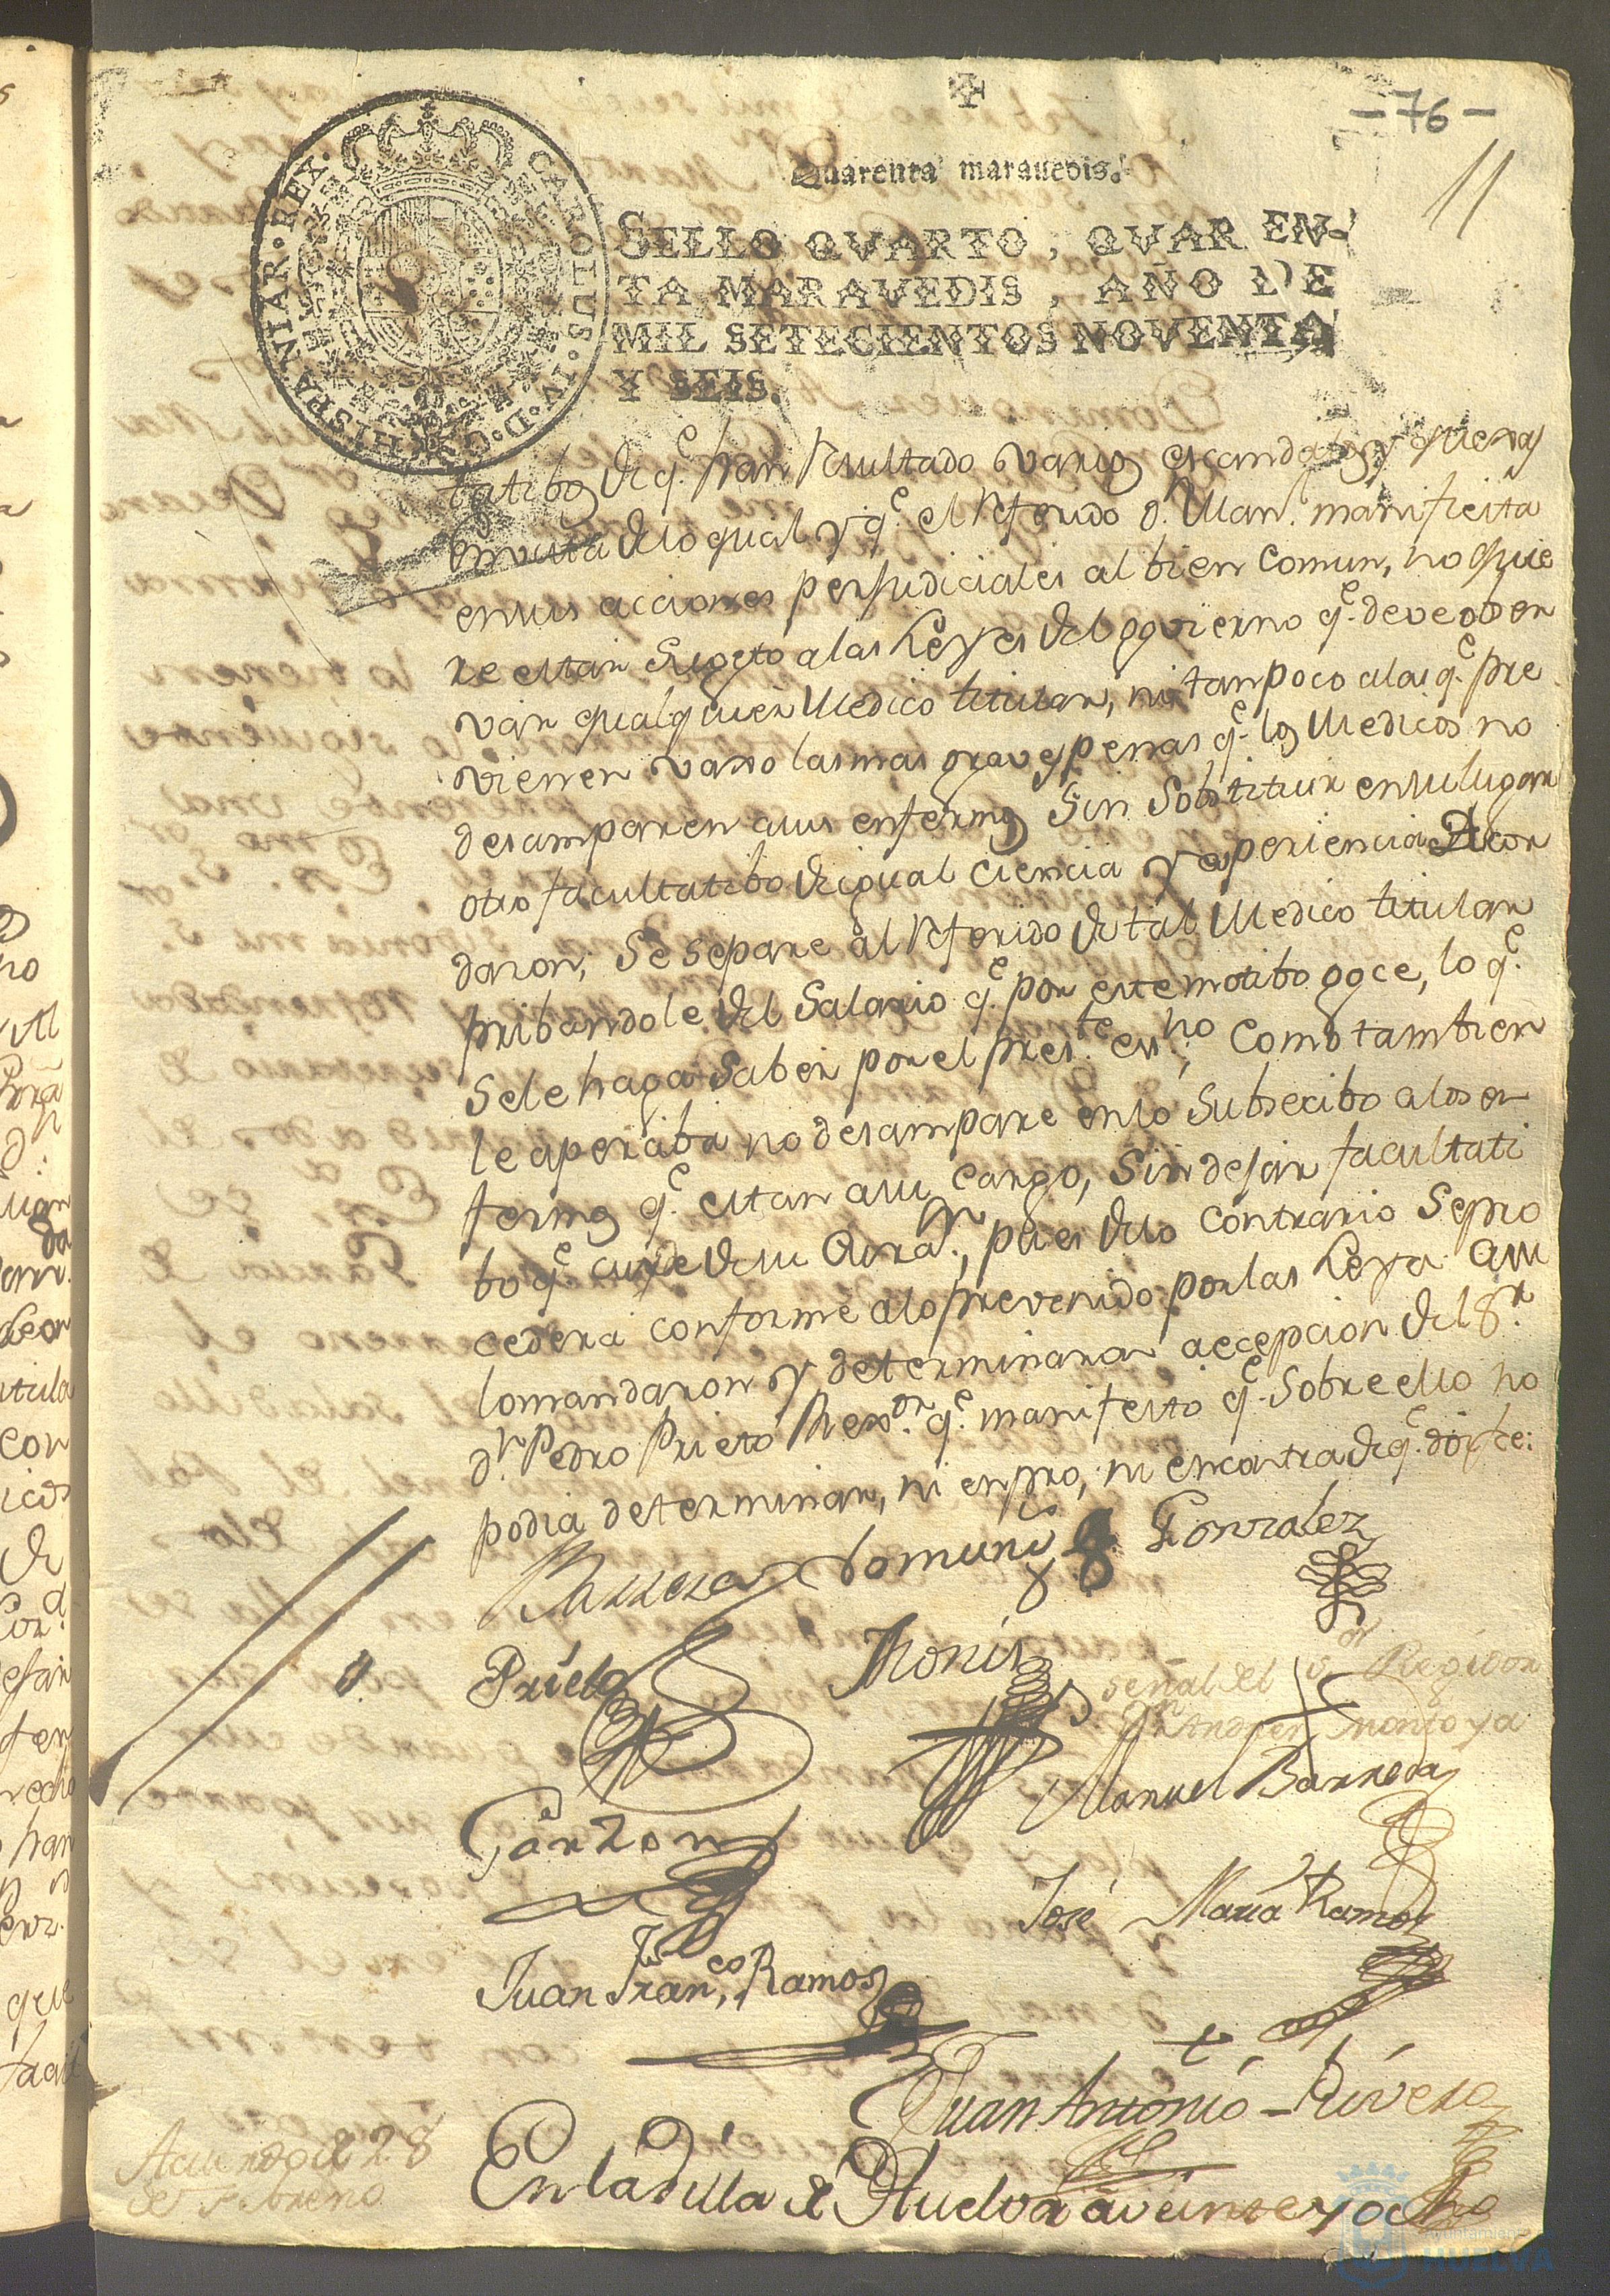 -76-
11
Quarenta maravedis.
SELLO QVARTO, QVAREN-
TA MARAVEDIS, AÑO DE
MIL SETECIENTOS NOVENTA
Y SEIS.
CAROLUS IV D G HISPANIAR REX
tatibos de q.e han resultado varios escandalos y quexas
en vista de lo qual y q.e el referido d.n Man. manifiesta
en sus acciones perjudiciales al bien comun, no quie
re estar sugeto a las Leyes del govierno q.e deve obser
var qualquier Medico titular, ni tanpoco a las q.e pre
vienen vaxo las mas graves penas q.e los Medicos no
desamparen a sus enfermos sin sobstituir en su lugar
otro facultatibo de igual ciencia y esperiencia Acor
daron; Se separe al referido de tal Medico titular
pribandole del Salario q.e por este motibo goce, lo q.e
se le haga saber por el pres.te es.no; como tambien
le aperciba no desampare en lo subsecibo a los en
fermos q.e estan a su cargo, sin dejar facultati
bo q.e cuyde de su Cura.on, pues de lo contrario se pro
cedera conforme a lo prevenido por las Leyes asi
lo mandaron y determinaron a ecepcion del S.r
d.n Pedro Prieto Rex.or q.e manifesto q.e sobre ello no
podia determinar, ni en pro, ni en contra de q.e doi fee:
Barrera Gonzalez
Prieto
señal del S.or Regidor
d.n Andres Montoya
Manuel Barreda
Garzon
José María Ramos
Juan Fran.co Ramos
Juan Antonio Rivera
Acuerdo de 28
de Febrero
En la Villa de Huelva a veinte y ocho
HUELVA